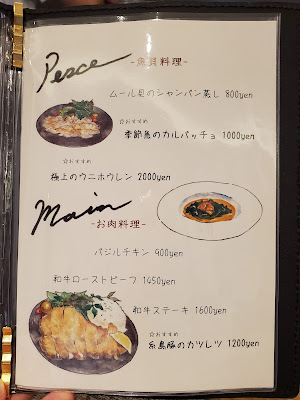 Pesce
-魚貝料理-
ムール貝のシャンパン蒸し 800yen
☆おすすめ
季節魚のカルパッチョ 1000yen
☆おすすめ
極上のウニホウレン 2000yen
Main
-お肉料理-
バジルチキン 900yen
和牛ローストビーフ 1450yen
和牛ステーキ 1600yen
☆おすすめ
糸島豚のカツレツ 1200yen